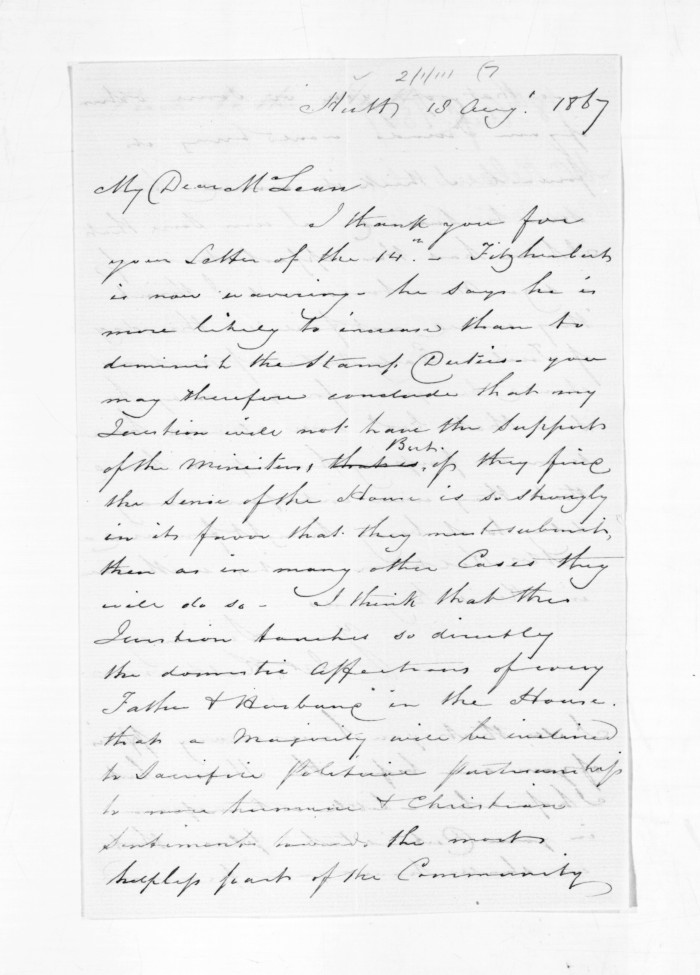 2/1/111 (7
Hutt 18 Augt. 1867
My Dear McLean
I thank you for
your Letter of the 14th - Fitzherbert
is now wavering - he says he is
more likely to increase than to
diminish the Stamp Duties - you
may therefore conclude that my
Question will not have the support
of the Ministers, But if they find
the sense of the House is so strongly
in its favor that they must submit,
then as in many other Cases they
will do so - I think that this
Question touches so directly
the domestic affections of every
Father & Husband in the House.
that a Majority will be inclined
to Sacrifice Political Partisanship
to more humane & Christian
Sentiments towards the most
helpless part of the Community